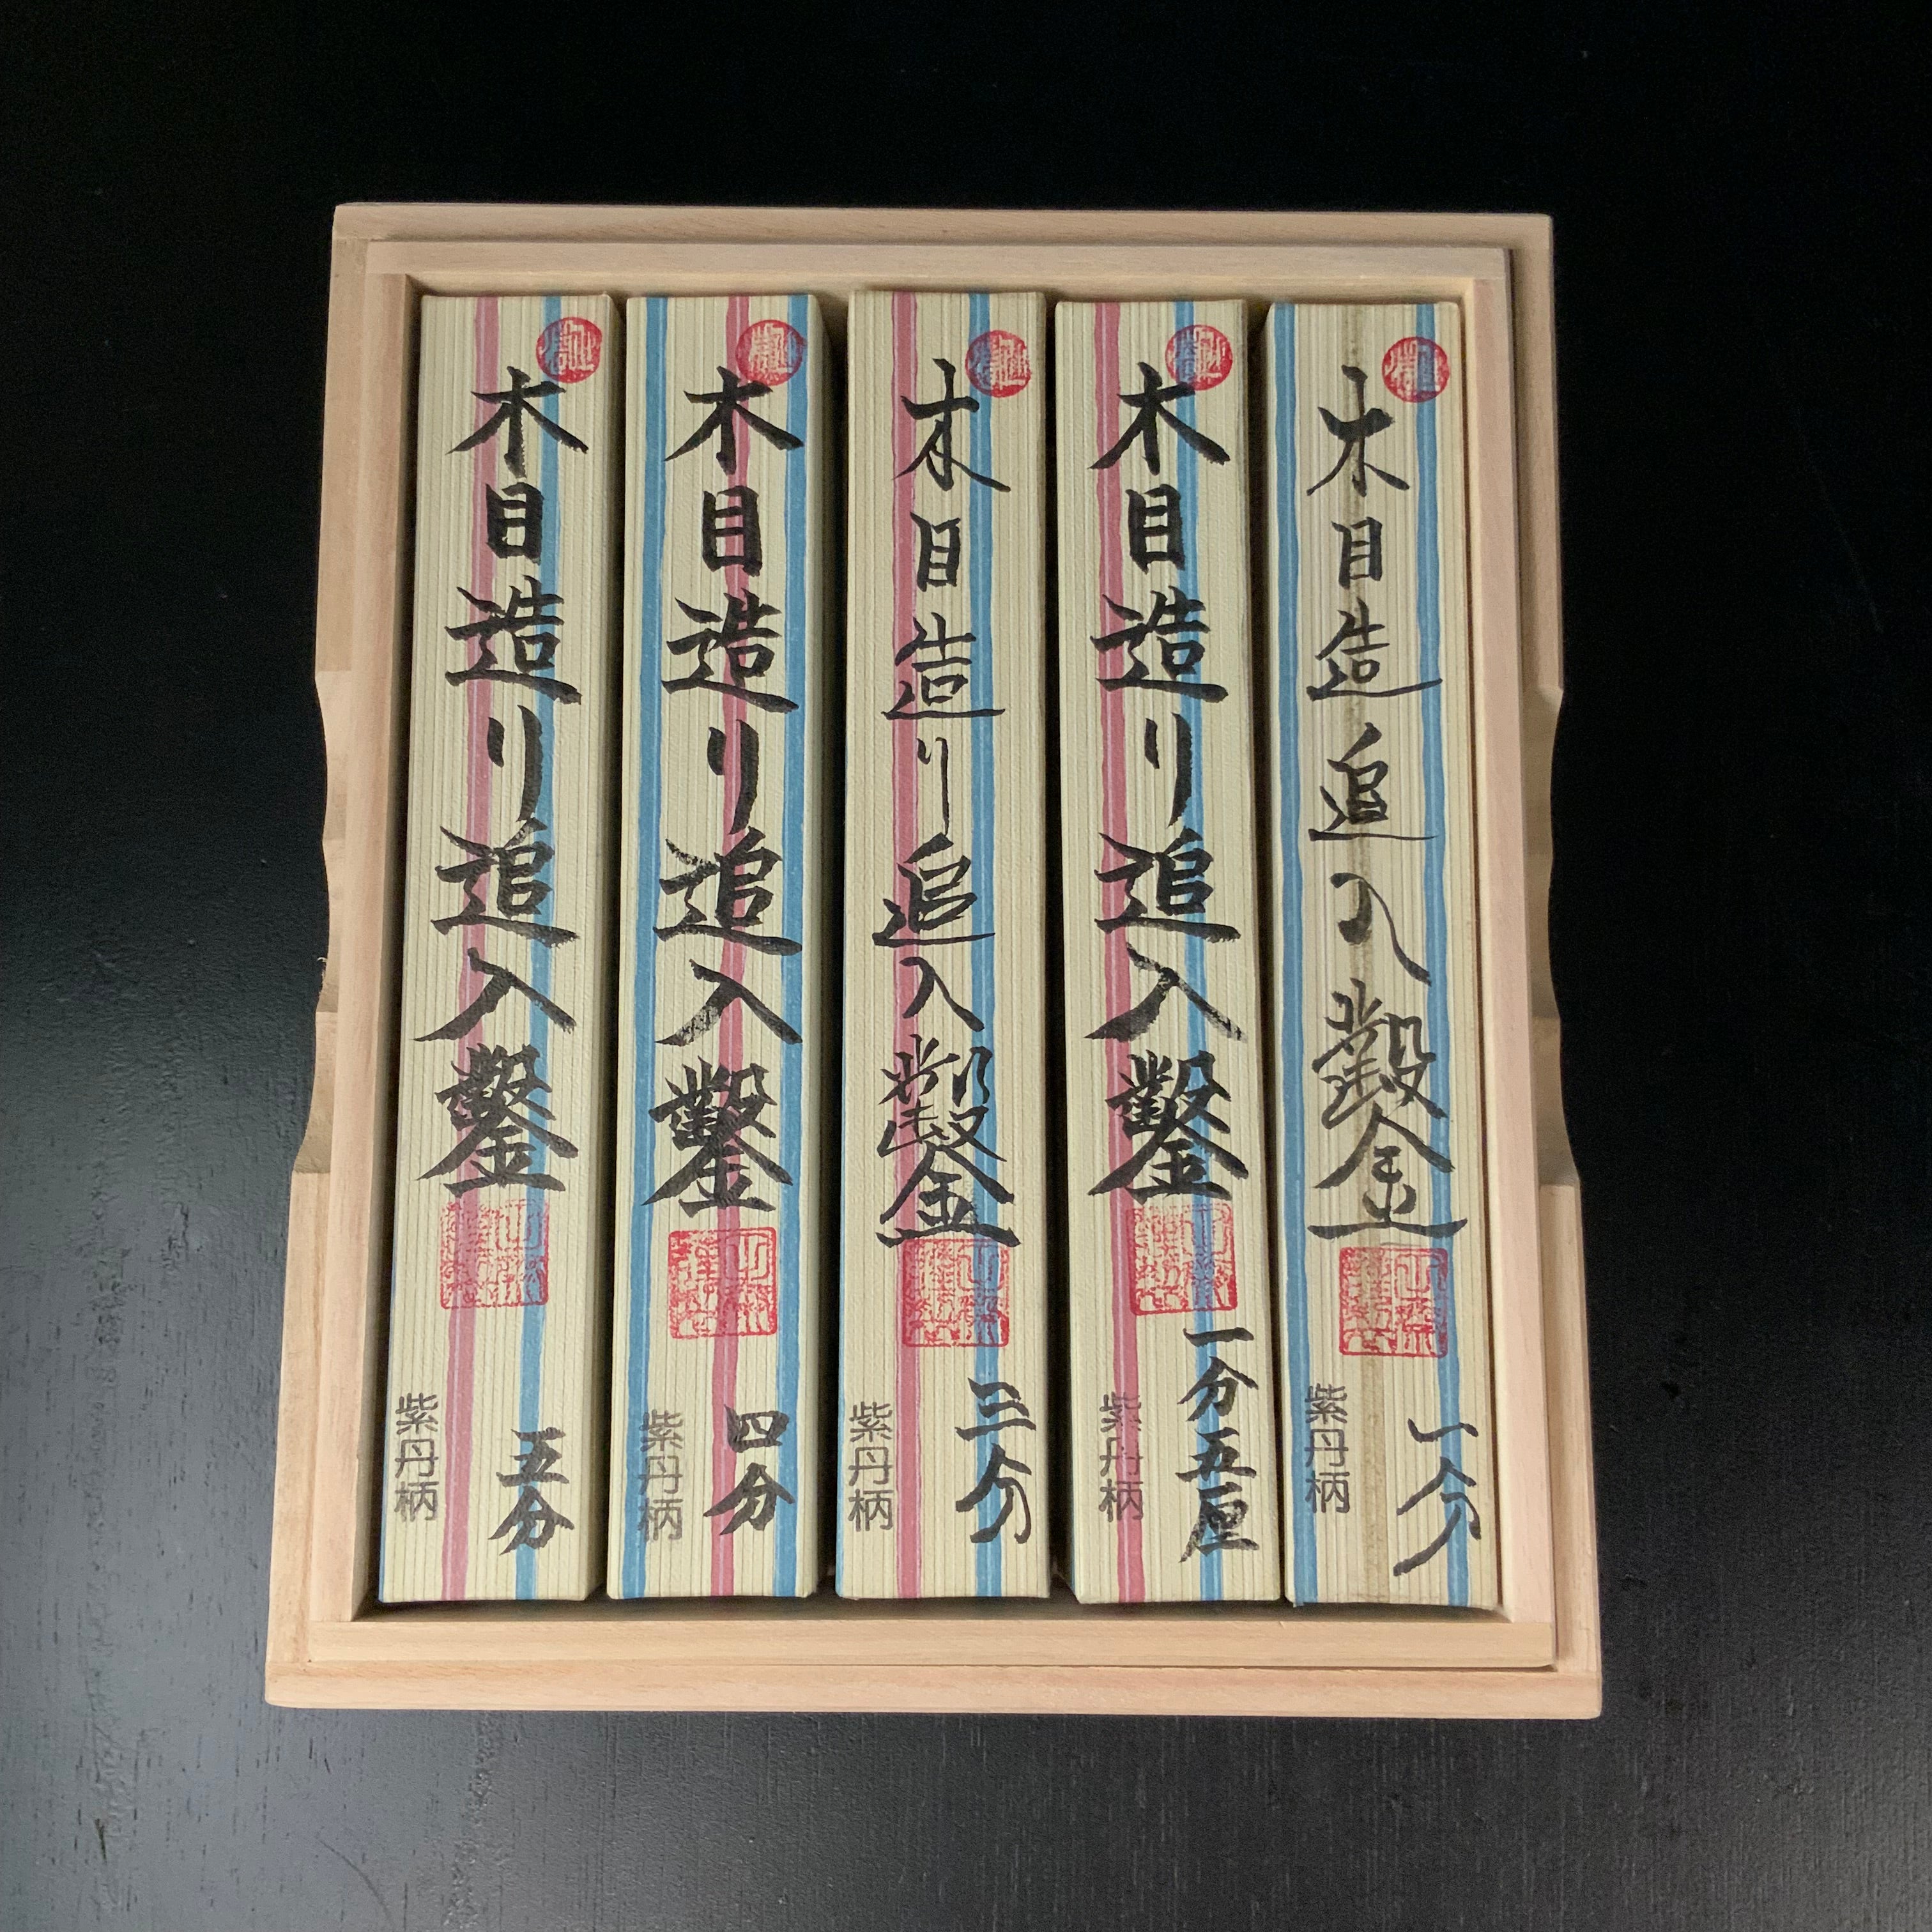 木目造追入鑿
一分
紫丹柄
木目造り追入鑿
一分五厘
紫丹柄
木目造り追入鑿
三分
紫丹柄
木目造り追入鑿
四分
紫丹柄
木目造り追入鑿
五分
紫丹柄